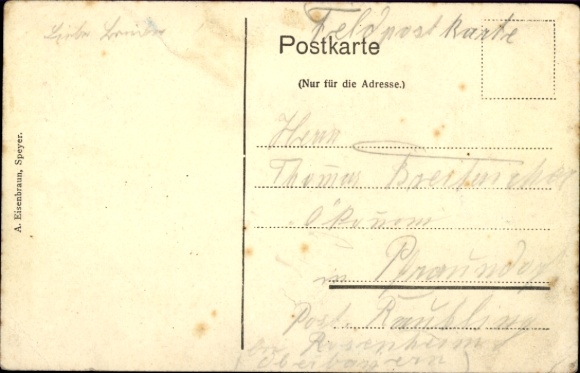 Liebe Brüder
Feldpostkarte
Postkarte
(Nur für die Adresse.)
A. Eisenbraun, Speyer.
Herrn
Thomas
Ökonom
in Pfraundorf
Post Raubling
Rosenheim
(Oberbayern)